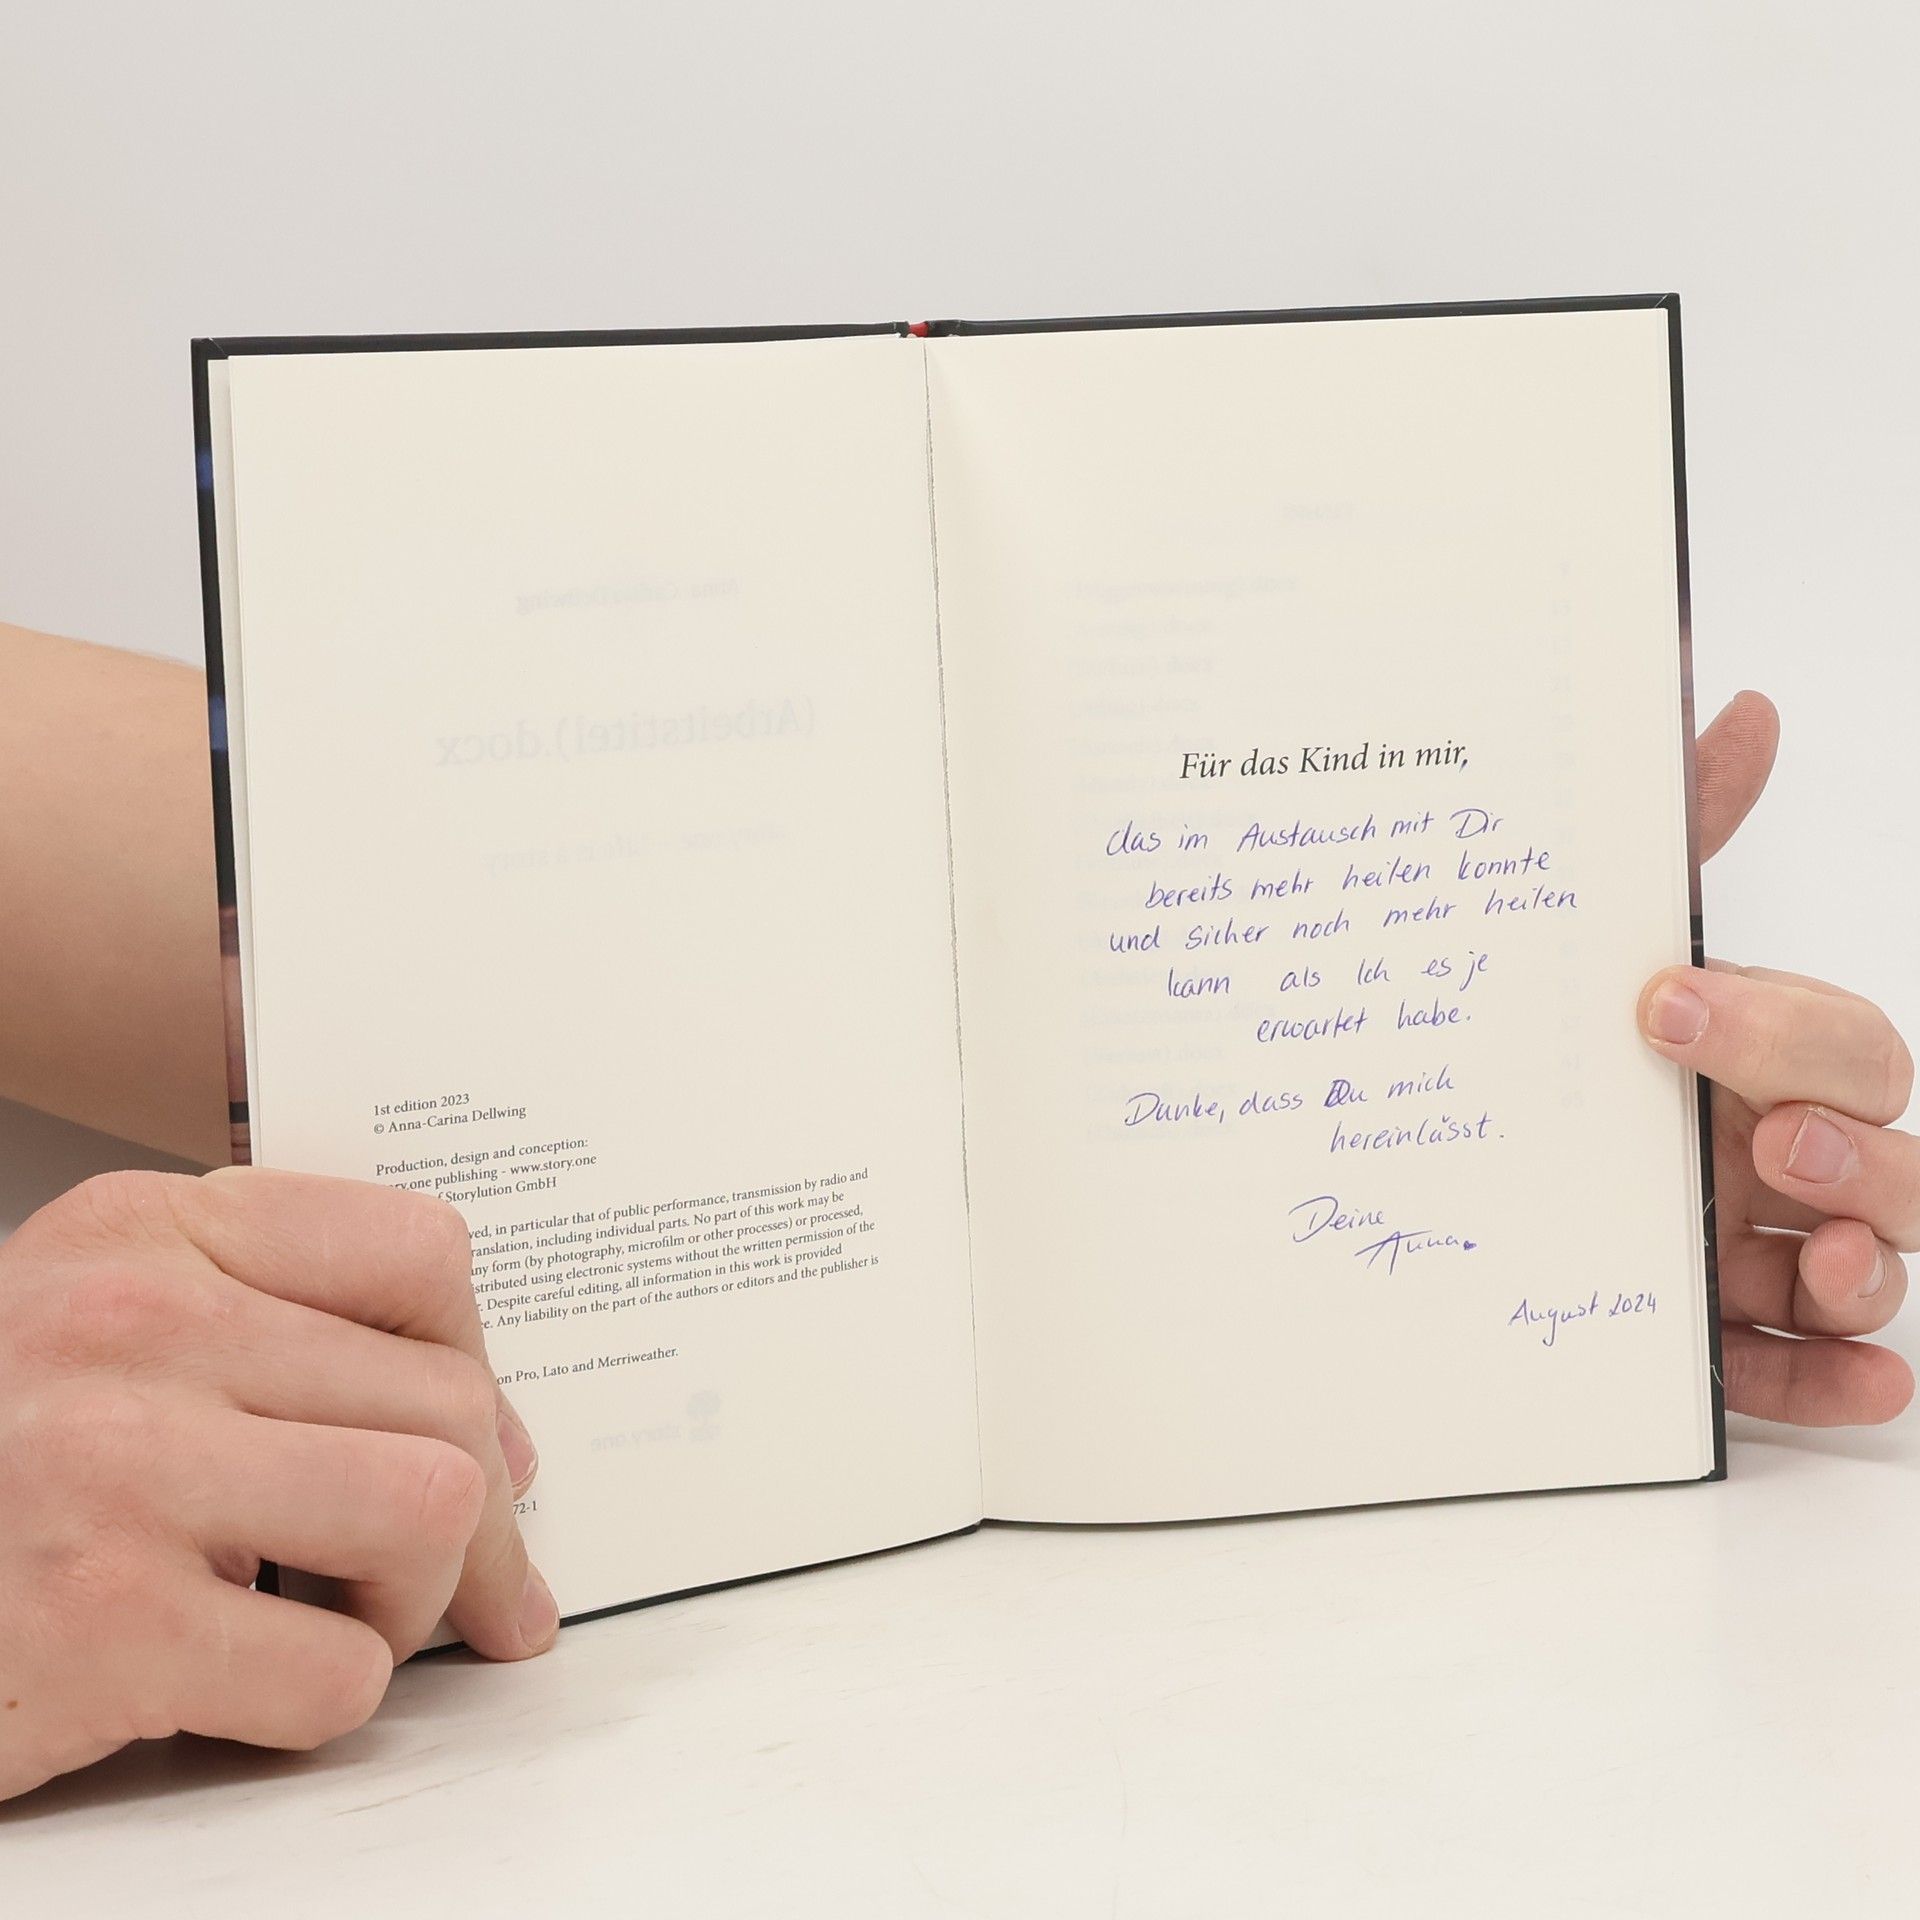 1st edition 2023
© Anna-Carina Dellwing
Production, design and conception:
publishing - www.story.one
Storylution GmbH
in particular that of public performance, transmission by radio and
including individual parts. No part of this work may be
form (by photography, microfilm or other processes) or processed,
using electronic systems without the written permission of the
Despite careful editing, all information in this work is provided
Any liability on the part of the authors or editors and the publisher is
Pro, Lato and Merriweather.
72-1
Anna-Carina Dellwing
(Arbeitstitel).docx
story.one – Life is a story
story.one
Für das Kind in mir,
das im Austausch mit Dir
bereits mehr heilen konnte
und sicher noch mehr heilen
kann als Ich es je
erwartet habe.
Danke, dass Du mich
hereinlässt.
Deine
Anna.
August 2024